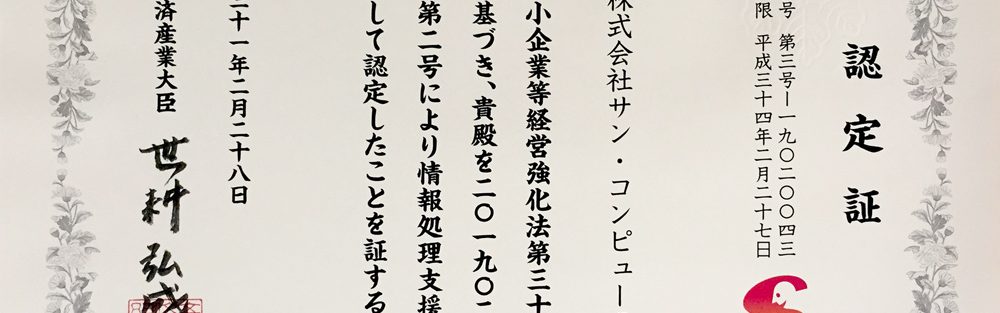 認定証
号 第三号ー一九〇二〇〇四三
限 平成三十四年二月二十七日
株式会社サン・コンピュー
小企業等経営強化法第三十
基づき、貴殿を二〇一九〇二
第二号により情報処理支援
して認定したことを証する
十一年二月二十八日
済産業大臣 世耕弘成